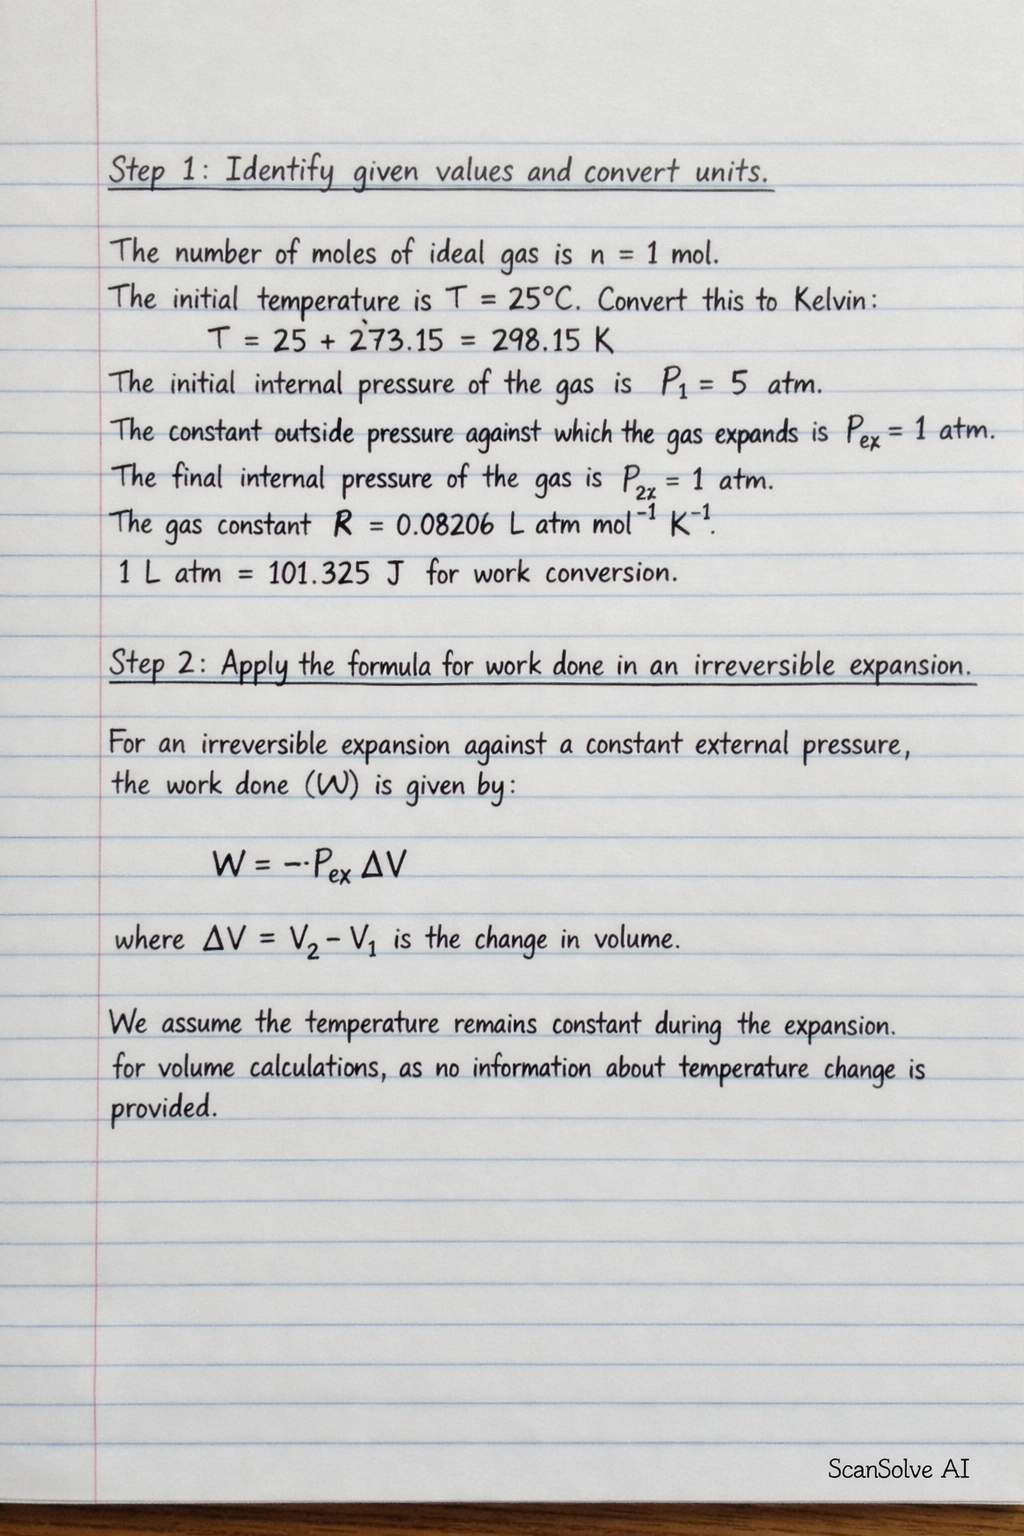 Step 1: Identify given values and convert units.
The number of moles of ideal gas is n = 1 mol.
The initial temperature is T = 25°C. Convert this to Kelvin:
T = 25 + 273.15 = 298.15 K
The initial internal pressure of the gas is P₁ = 5 atm.
The constant outside pressure against which the gas expands is Pₑₓ = 1 atm.
The final internal pressure of the gas is P₂ₓ = 1 atm.
The gas constant R = 0.08206 L atm mol⁻¹ K⁻¹.
1 L atm = 101.325 J for work conversion.
Step 2: Apply the formula for work done in an irreversible expansion.
For an irreversible expansion against a constant external pressure,
the work done (W) is given by:
W = -·Pₑₓ ΔV
where ΔV = V₂ - V₁ is the change in volume.
We assume the temperature remains constant during the expansion.
for volume calculations, as no information about temperature change is
provided.
ScanSolve AI